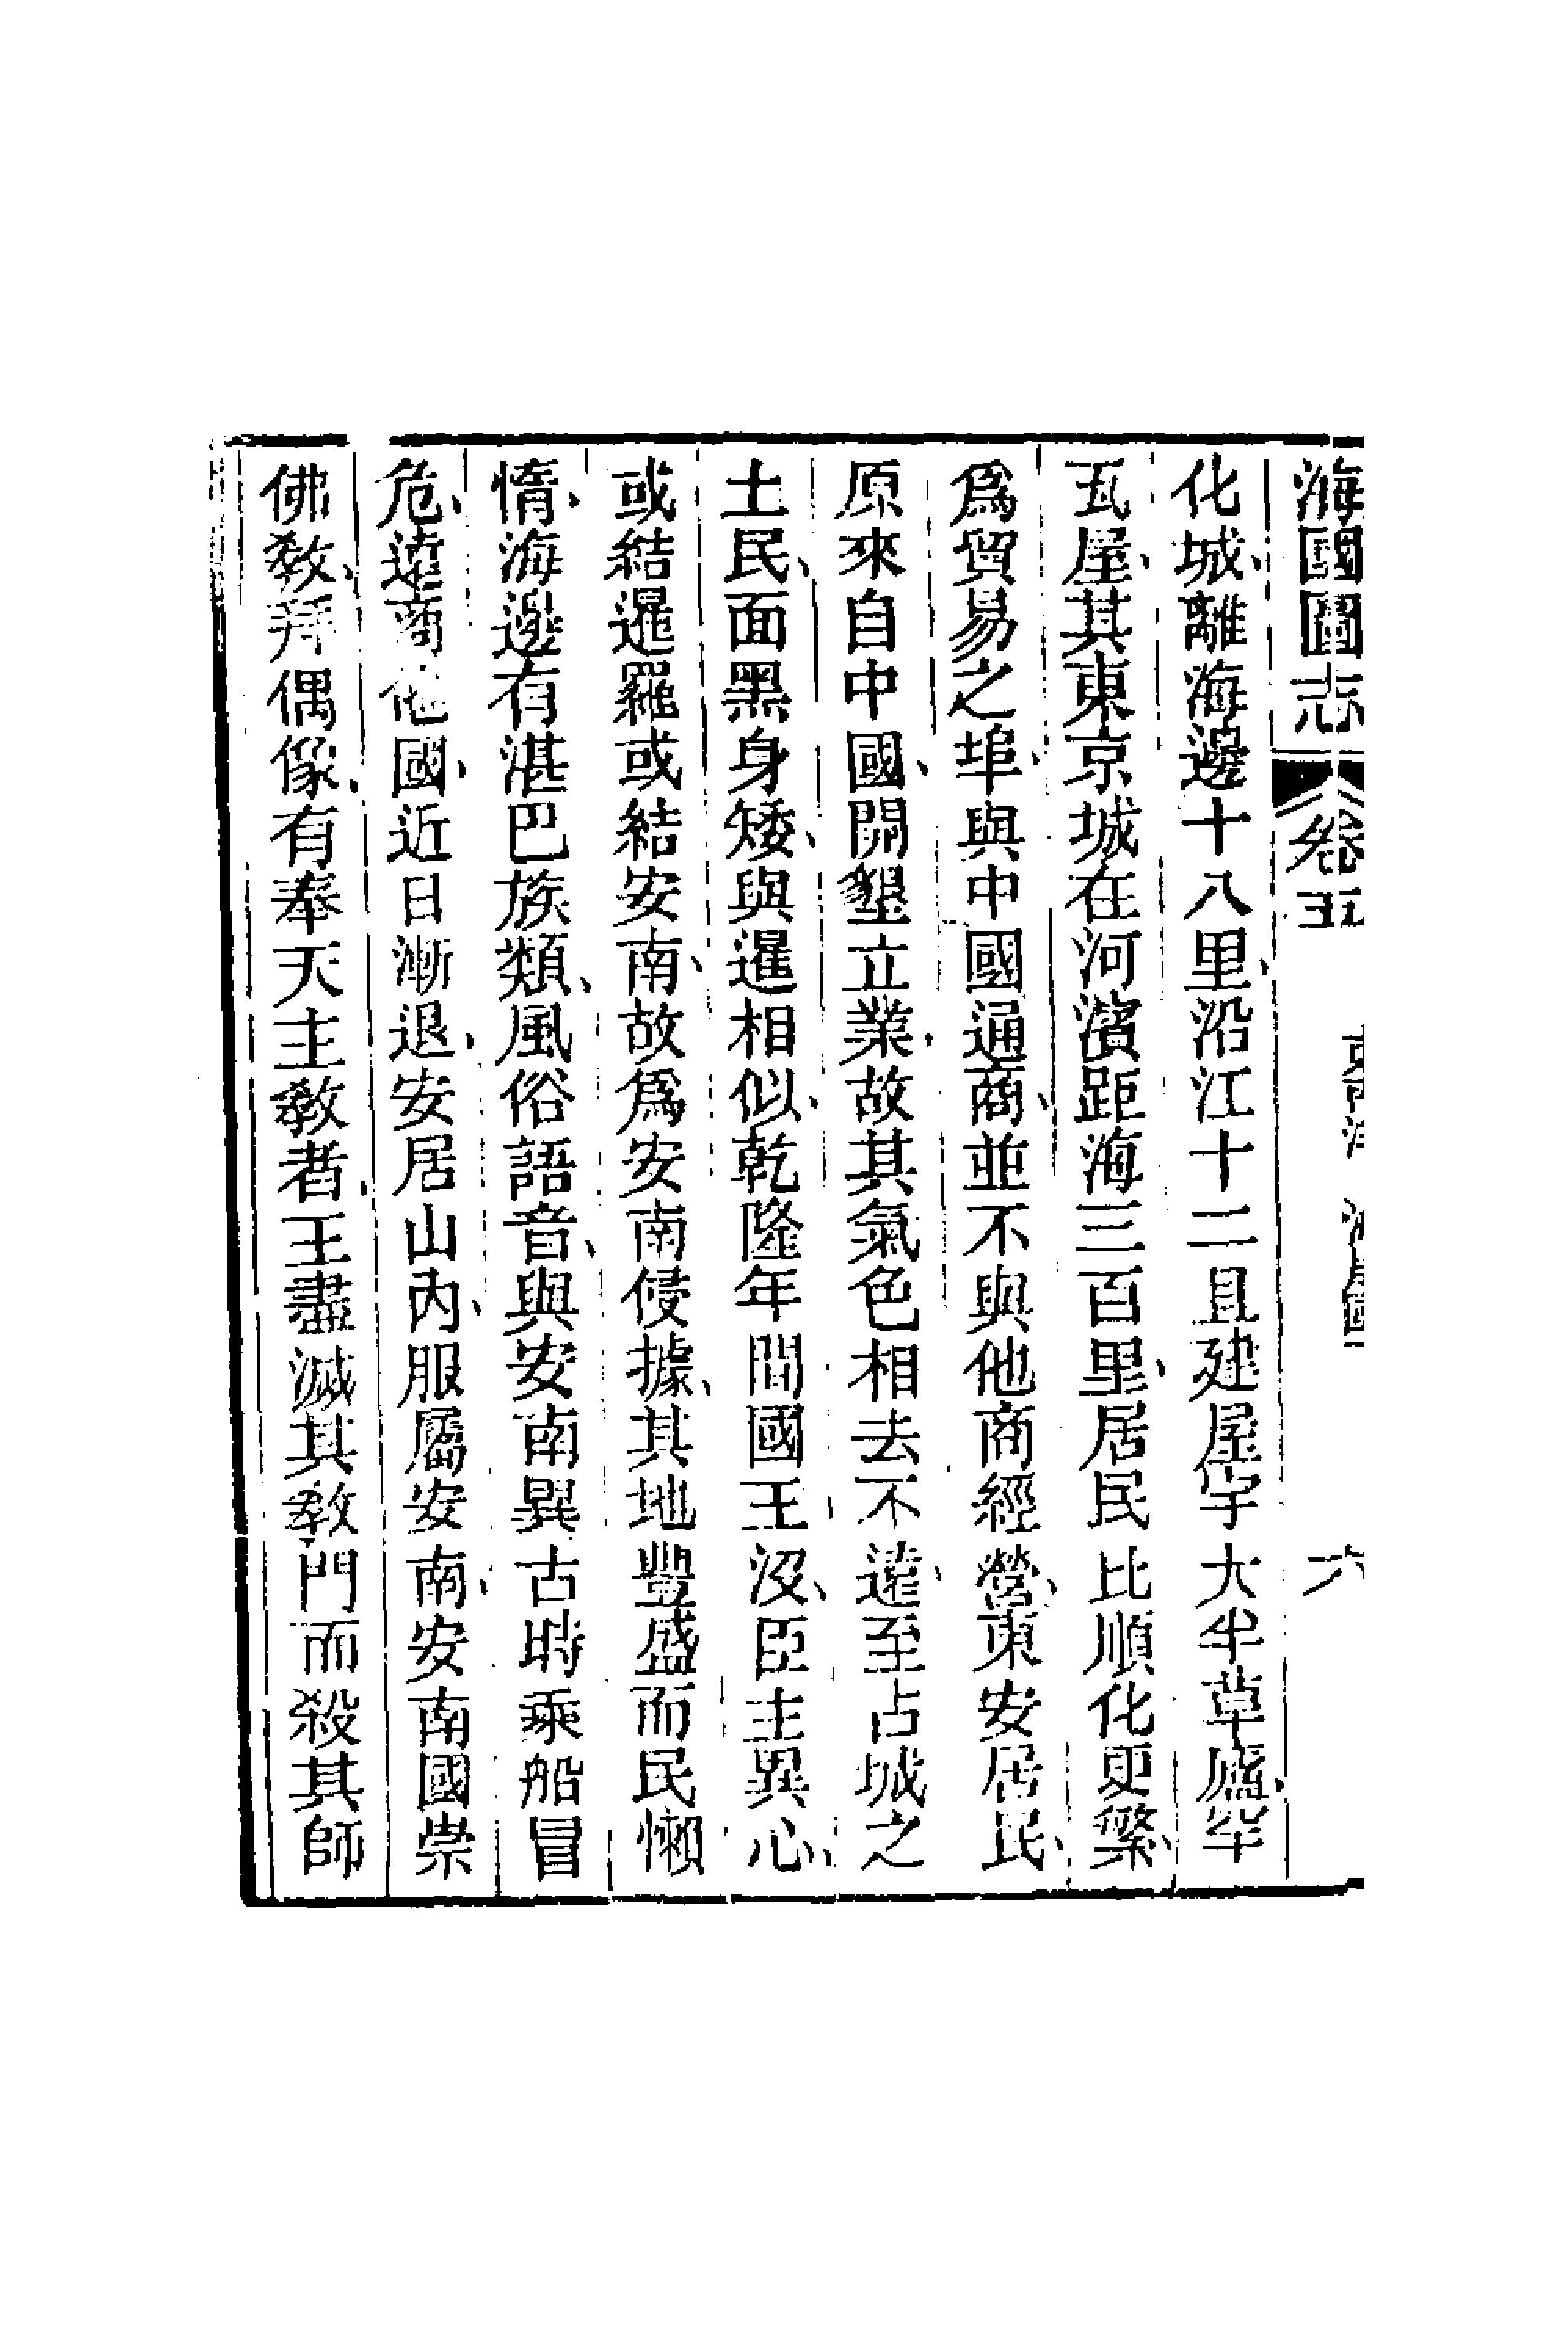 海國圖志 卷五 六
化城、離海邊十八里、沿江十二且建屋宇大半草廬、罕
瓦屋、其東京城在河濱距海三百里、居民比順化更繁、
爲貿易之埠、與中國通商、並不與他商經營、東安居民、
原來自中國、開墾立業、故其氣色相去不遠、至占城之
土民、面黑身矮、與暹相似、乾隆年間國王沒、臣主異心、
或結暹羅或結安南、故爲安南侵據、其地豐盛而民懶
惰、海邊有湛巴族類、風俗語音、與安南異古時乘船冒
危、遠商他國、近日漸退、安居山內、服屬安南、安南國崇
佛教、拜偶像、有奉天主教者、王盡滅其教門而殺其師